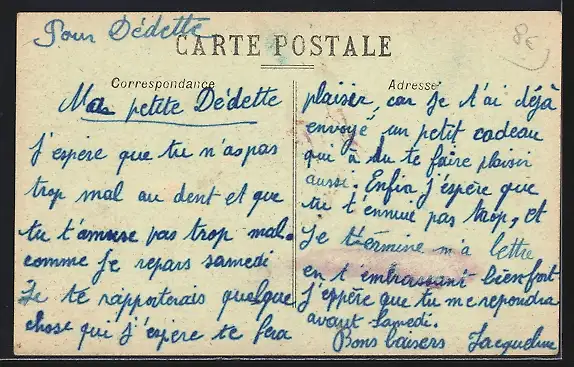 Pour Dédette
8€
CARTE POSTALE
Correspondance
Adresse
Ma petite Dédette
J'espère que tu n'as pas
trop mal au dent et que
tu t'amuse pas trop mal.
comme Je repars samedi
Je te rapporterais quelque
chose qui j'espère te fera
plaisir, car Je t'ai déjà
envoyé un petit cadeau
qui à du te faire plaisir
aussi. Enfin J'espère que
tu t'ennuie pas trop, et
Je termine m'a lettre
en t embrassant bien fort
J'espère que tu me repondra
avant Samedi.
Bons baisers Jacqueline